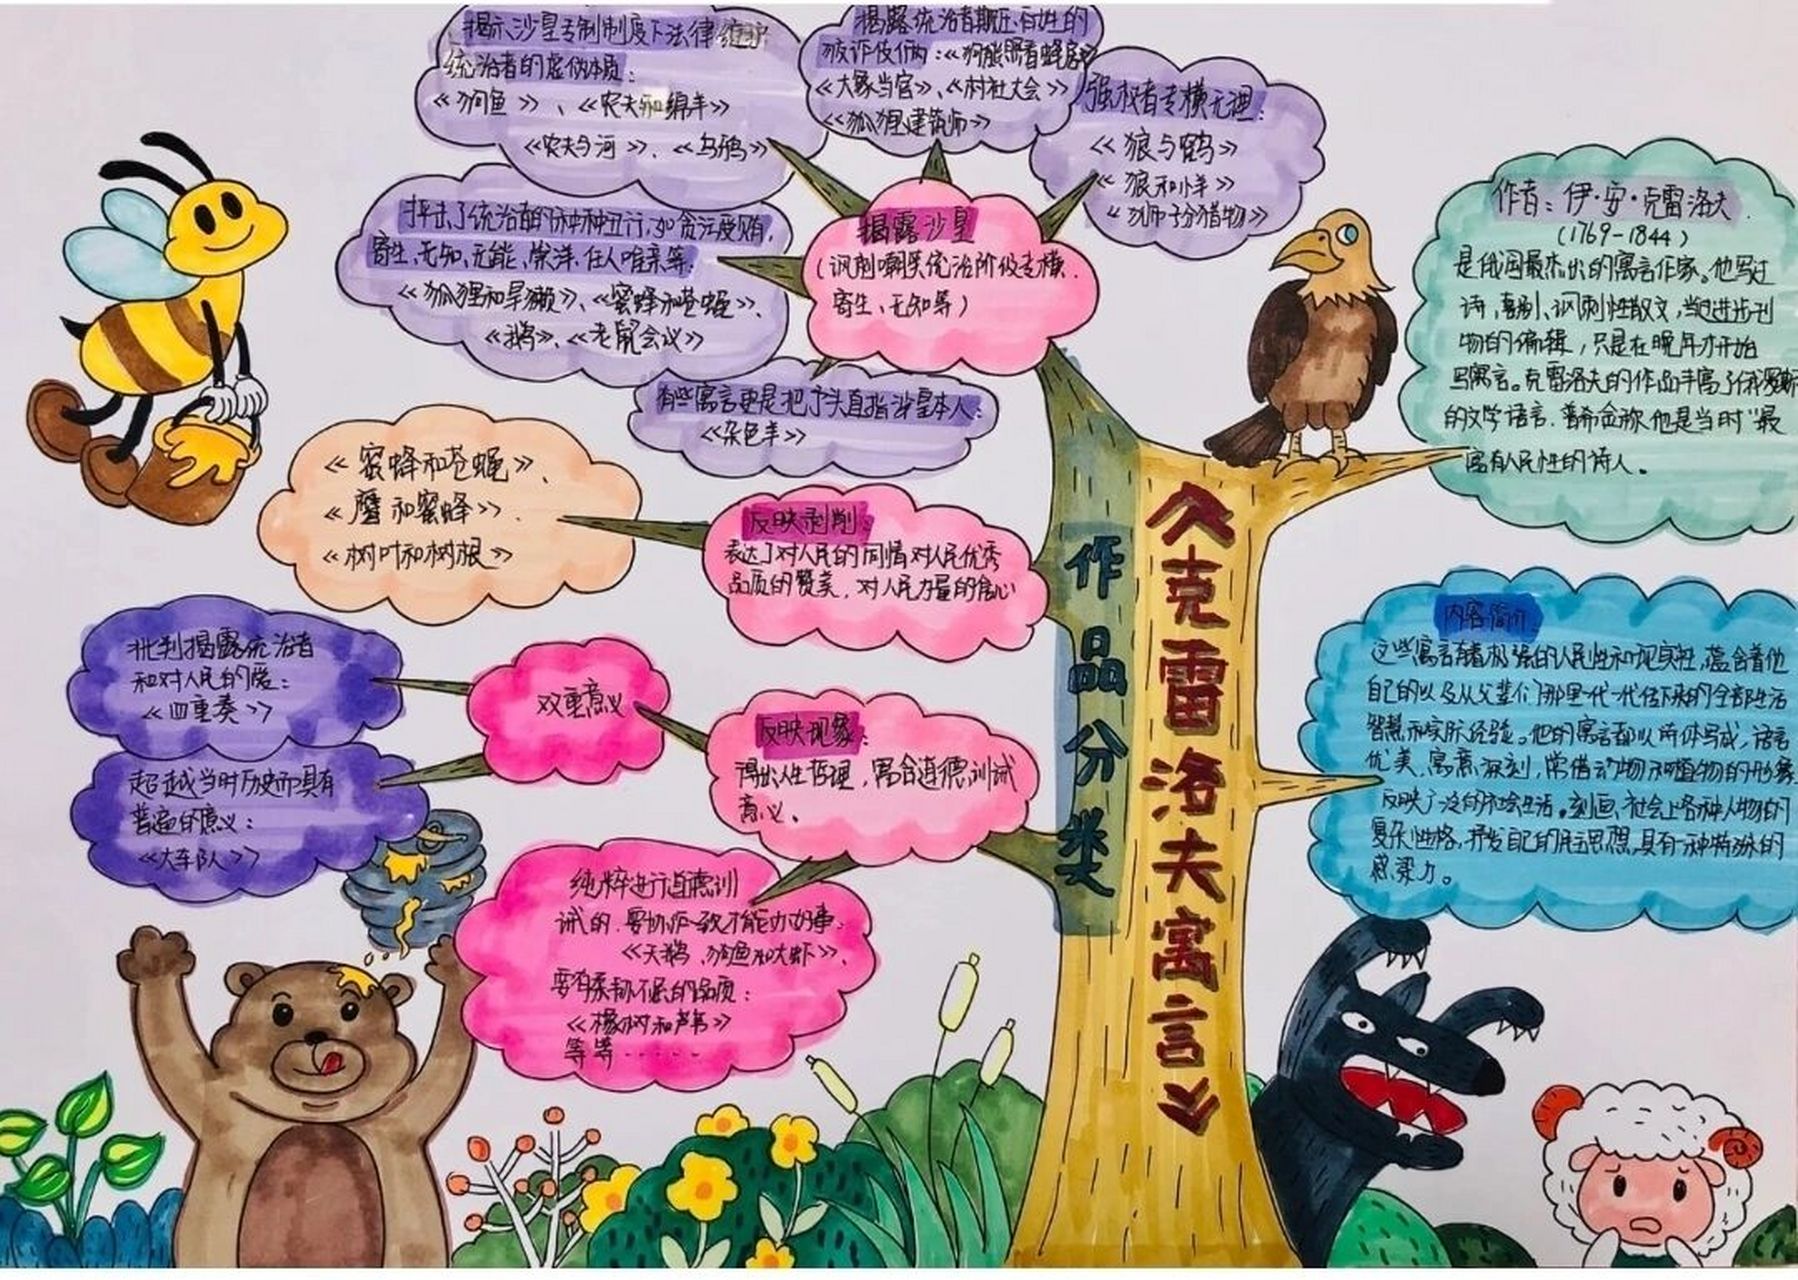 揭示沙皇专制制度下法律维护
统治者的虚伪本质：
《狗鱼》、《农夫和绵羊》
《农夫与河》、《乌鸦》
揭露统治者欺压百姓的
《大象当官》、《村社大会》
《狐狸建筑师》
强权者专横无理：
《狼与鹤》
《狼和小羊》
《狮子分猎物》
抨击了统治者的种种丑行，如贪污受贿，
寄生、无知、无能、崇洋、任人唯亲等．
《狐狸和旱獭》、《蜜蜂和苍蝇》、
《鹅》、《老鼠会议》
揭露沙皇
(讽刺嘲笑统治阶级专横．
寄生、无知等)
有些寓言更是把矛头直指沙皇本人：
《杂色羊》
作者：伊·安·克雷洛夫．
(1769-1844)
是俄国最杰出的寓言作家。他写过
诗，喜剧、讽刺性散文，当过进步刊
物的编辑，只是在晚年才开始
写寓言。克雷洛夫的作品丰富了俄罗斯
的文学语言，普希金称他是当时“最
富有人民性的诗人。
《蜜蜂和苍蝇》、
《鹰和蜜蜂》、
《树叶和树根》
反映剥削：
表达了对人民的同情对人民优秀
品质的赞美，对人民力量的信心
批判揭露统治者
和对人民的爱：
《四重奏》
双重意义
超越当时历史而具有
普遍的意义：
《大车队》
反映现象：
得出人生哲理，寓含道德训诫
意义、
纯粹进行道德训
诫的，要协作一致才能办好事．
《天鹅、狗鱼和大虾》、
《橡树和芦苇》
等等······
作品分类
《克雷洛夫寓言》
内容简介
这些寓言有着极强的人民性和现实性，蕴含着他
自己的以及从父辈们那里一代一代传下来的全部生活
智慧和实际经验。他的寓言都以诗体写成，语言
优美，寓意深刻，常借动物和植物的形象
反映广泛的社会生活。刻画社会上各种人物的
复杂性格，抒发自己的民主思想，具有一种特殊的
感染力。